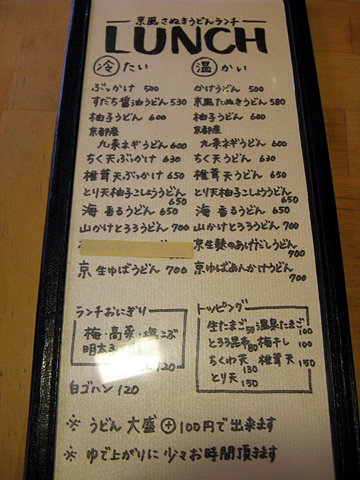 京風さぬきうどんランチ
LUNCH
冷たい
ぶっかけ 500
すだち醤油うどん 530
柚子うどん 600
京都産
九条ネギうどん 600
ちく天ぶっかけ 630
椎茸天ぶっかけ 650
とり天柚子こしょううどん
650
海香るうどん 650
山かけとろろうどん 700
京生ゆばうどん 700
温かい
かけうどん 500
京風たぬきうどん 580
柚子うどん 600
京都産
九条ネギうどん 600
ちく天うどん 630
椎茸天うどん 650
とり天柚子こしょううどん
650
海香るうどん 650
山かけとろろうどん 700
京生麩のあげだしうどん
700
京ゆばあんかけうどん
700
ランチおにぎり
梅・高菜・塩こぶ
明太子
120
白ゴハン 120
トッピング
生たまご 50 温泉たまご 100
とろろ昆布 80 梅干し 100
ちくわ天 130 椎茸天 150
とり天 150
※ うどん大盛 ⊕100円で出来ます
※ ゆで上がりに少々お時間頂きます